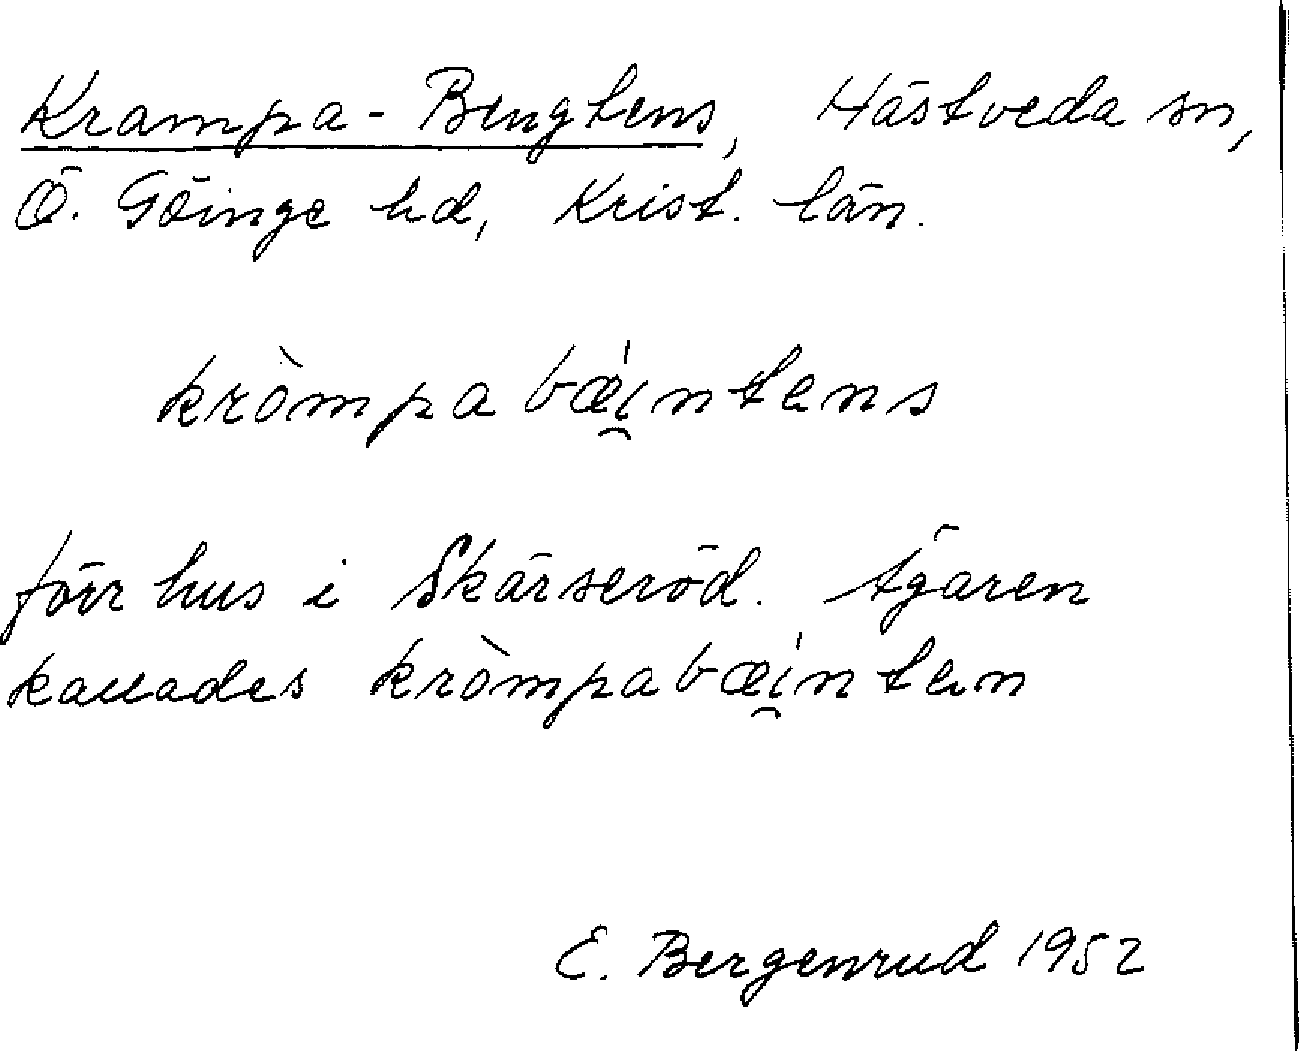 Krampa-Bengtens, Hästveda sn,
Ö. Göinge hd, Krist. län.
kròmpabæ̍i̯ntens
förr hus i Skärseröd. Ägaren
kallades kròmpabæ̍i̯nten
E. Bergenrud 1952